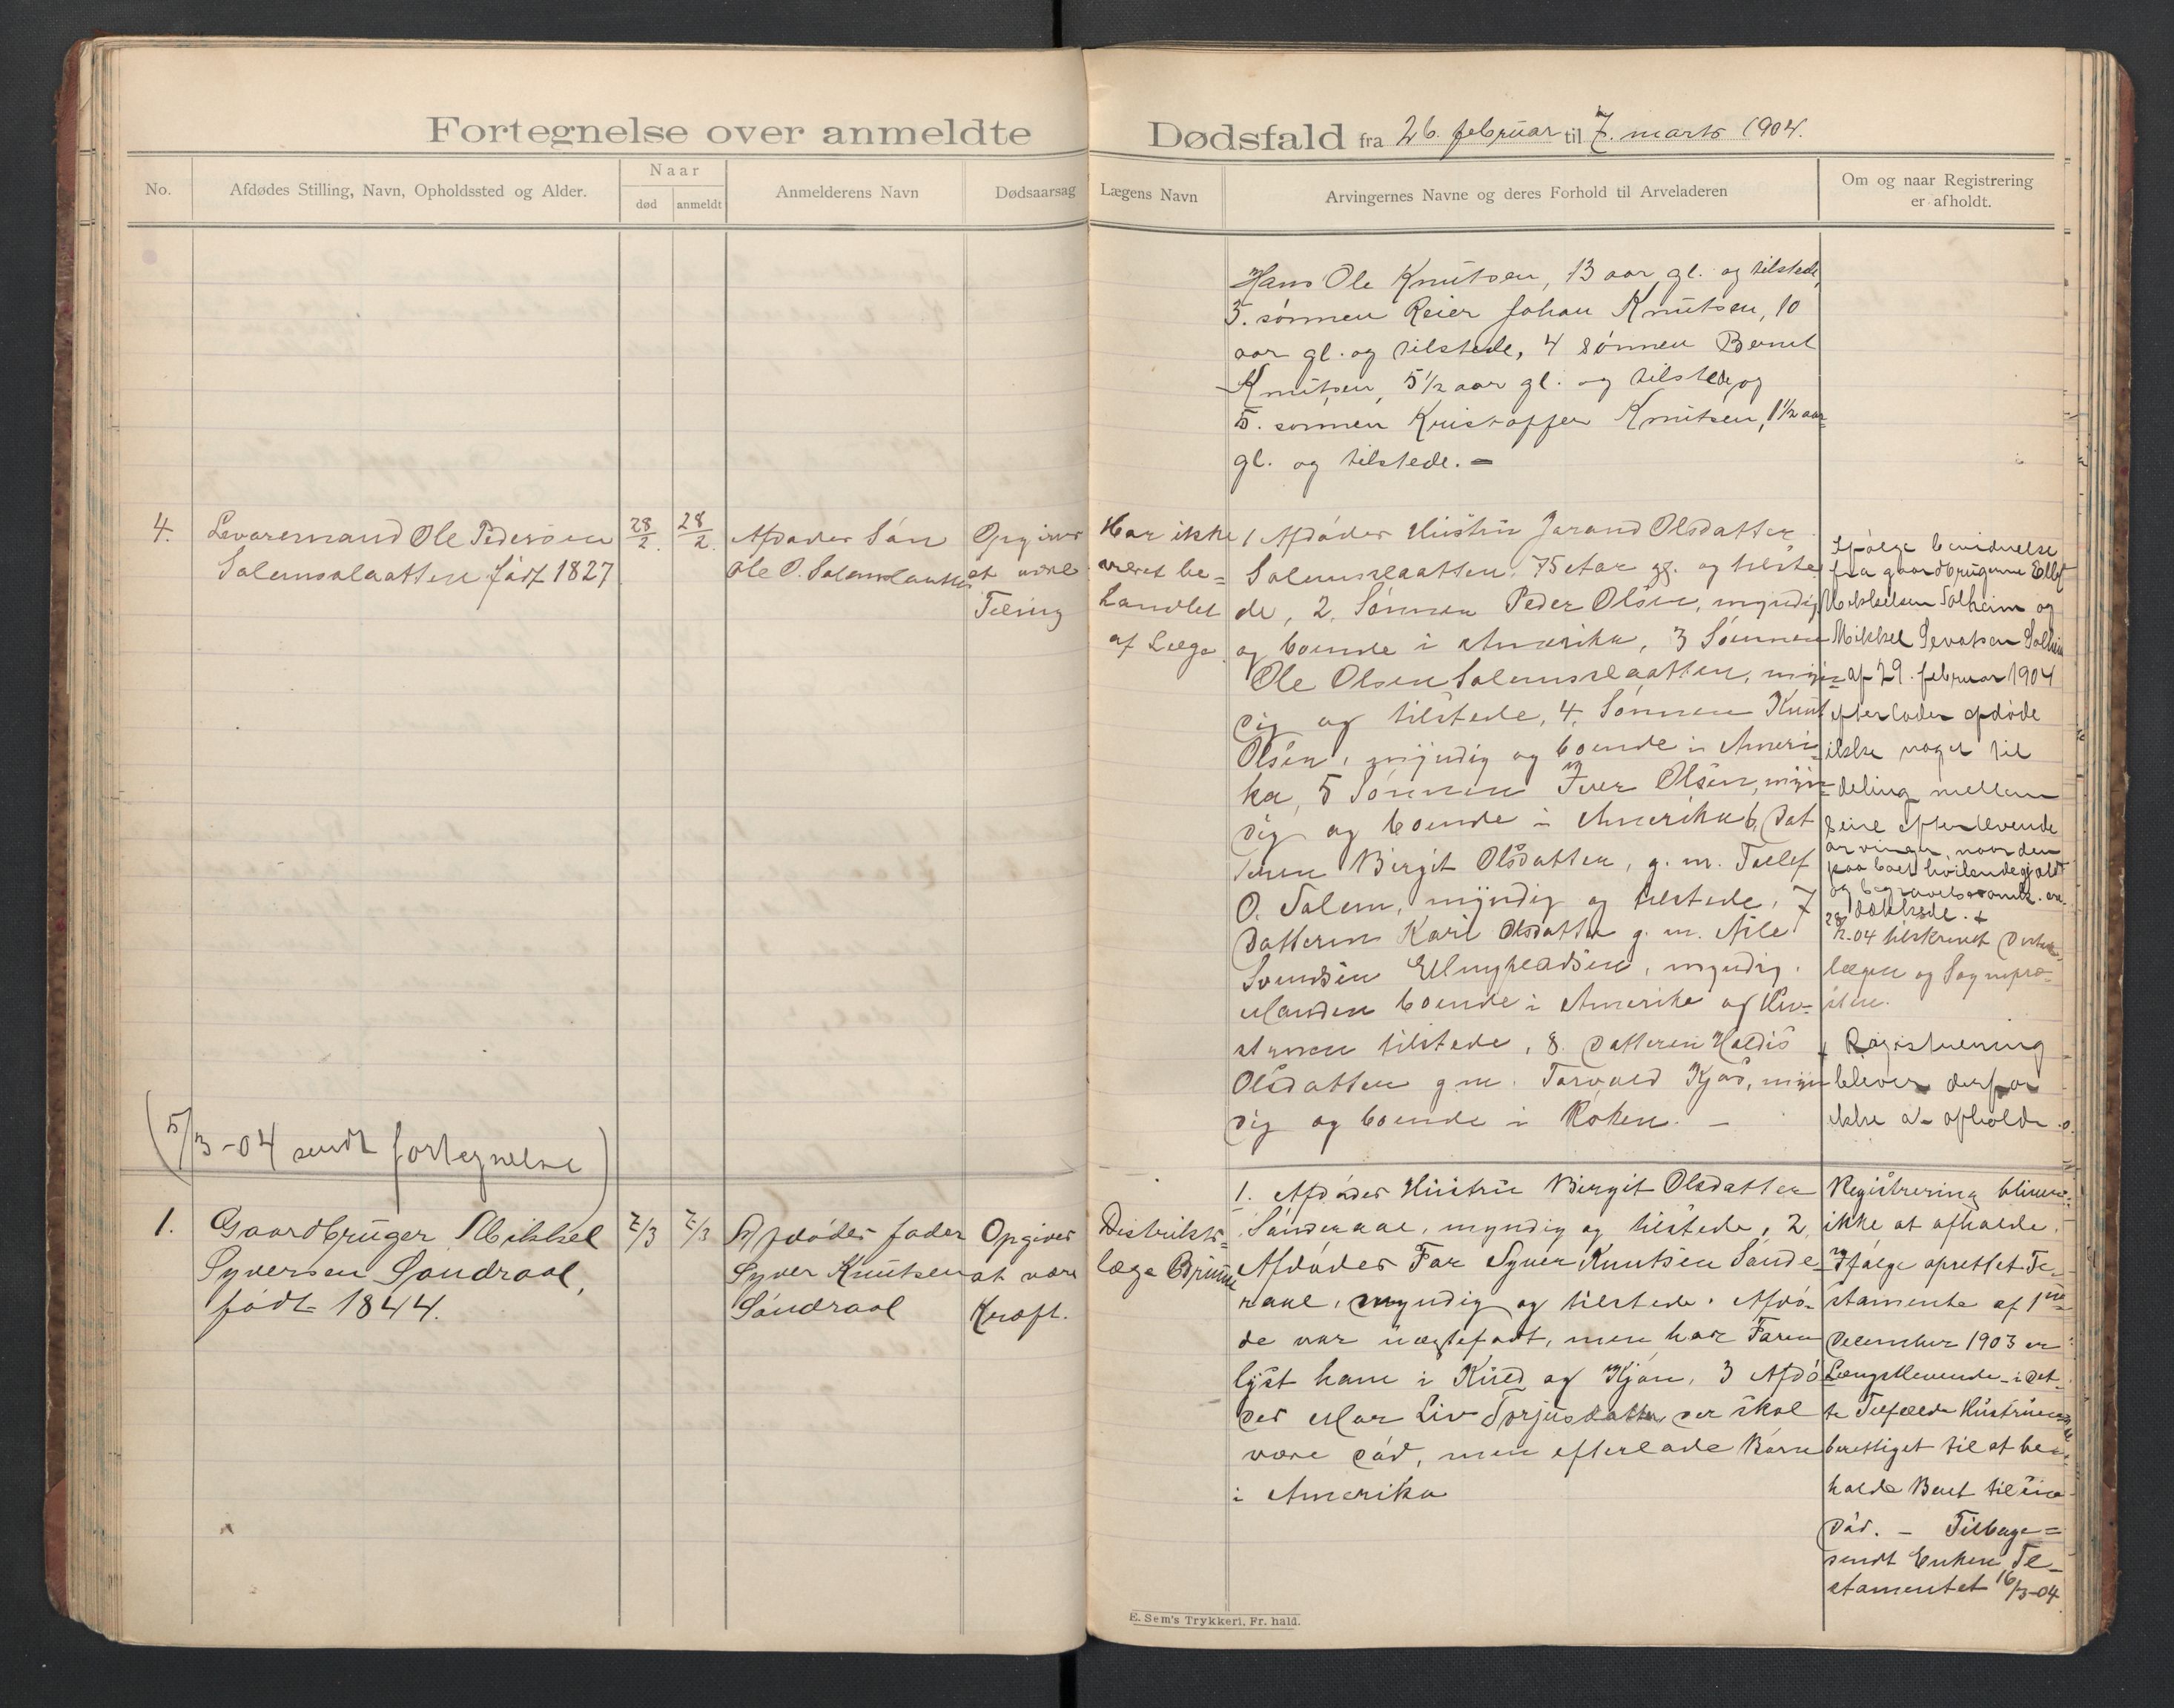 Fortegnelse over anmeldte Dødsfald fra 26. februar til 7. marts 1904.
No.
Afdødes Stilling, Navn, Opholdssted og Alder.
Naar
død
anmeldt
Anmelderens Navn
Dødsaarsag
Lægens Navn
Arvingernes Navne og deres Forhold til Arveladeren
Om og naar Registrering
er afholdt.
Hans Ole Knutsen, 13 aar gl. og tilstede,
3. sønnen Reier Johan Knutsen, 10
aar gl. og tilstede, 4 sønnen Bernt
Knutsen, 5 1/2 aar gl. og tilstede, og
5. sønnen Kristoffer Knutsen, 1 1/2 aar
gl. og tilstede. -
4.
Levaremand Ole Pedersen
født 1827
28/2.
28/2.
Afdødes Søn
Ole O.
Opgives
at være
Tæring
Har ikke
været be=
handlet
af Læge.
1 Afdødes Hustru Jorand Olsdatter
75 aar gl. og tilste
de, 2. Sønnen Peder Olsen, myndig
og boende i Amerika, 3 Sønnen
Ole Olsen myn=
dig og tilstede, 4. Sønnen Knut
Olsen, myndig og boende i Ameri=
ka, 5 Sønnen Iver Olsen, myn=
dig og boende i Amerika 6, Dat
teren Birgit Olsdatter, g. m. Tollef
O. Salem, myndig og tilstede, 7
Datteren Kari Olsdatter g. m. Nils
Svendsen myndig.
Manden boende i Amerika og Hu=
struen tilstede, 8. Datteren Haldis
Olsdatter g. m. Torvald myn
dig og boende i
Ifølge bevidnelse
fra gaardbrugerne Ellef
Mikkelsen Solheim og
Mikkel Sevatsen Solheim
af 29. februar 1904
efterlader afdøde
ikke noget til
deling mellem
sine efterlevende
arvinger, naar den
paa boet hvilende gjæld
og begravelsesomk. er
dækkede. +
28/2-04 tilskrevet Distr.
lægen og Sognepræ=
sten.
+ Registrering
bliver derfor
ikke at afholde.
(5/3-04 sendt fortegnelse)
1.
Gaardbruger Mikkel
Syversen Søndraal,
født 1844.
7/3
7/3
Afdødes fader
Syver Knutsen
Søndraal
Opgives
at være
Kræft.
Distrikts=
læge
1. Afdødes Hustru Birgit Olsdatter
Sønderaal, myndig og tilstede, 2,
Afdødes Far Syver Knutsen Sønde
raal, myndig og tilstede. Afdø=
de var uægtefødt, men har Faren
lyst ham i Kuld og Kjøn, 3 Afdø
des Mor Liv Torjusdatter, der skal
være død, men efterlade Børn
i Amerika
Registrering bliver
ikke at afholde.
Ifølge oprettet Te=
stamente af 1ste
December 1903 er
Længstlevende i det=
te Tilfælde Hustruen
berettiget til at be=
holde Boet til sin
Død. - Tilbage=
sendt Enken Te=
stamentet 16/3-04.
E. Sem's Trykkeri, Fr. hald.